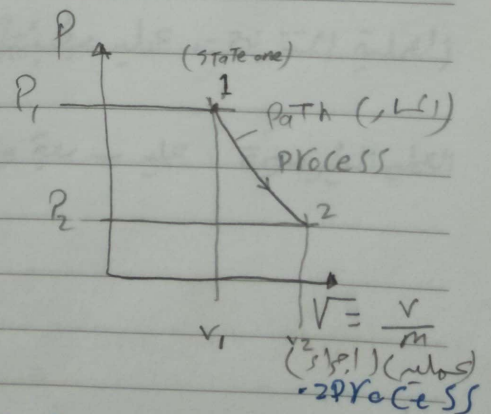 P
(state one)
1
P₁
Path (
Process
P₂
2
V = V/m
v₁
v₂
(اجراء) (عملية)
.2Process